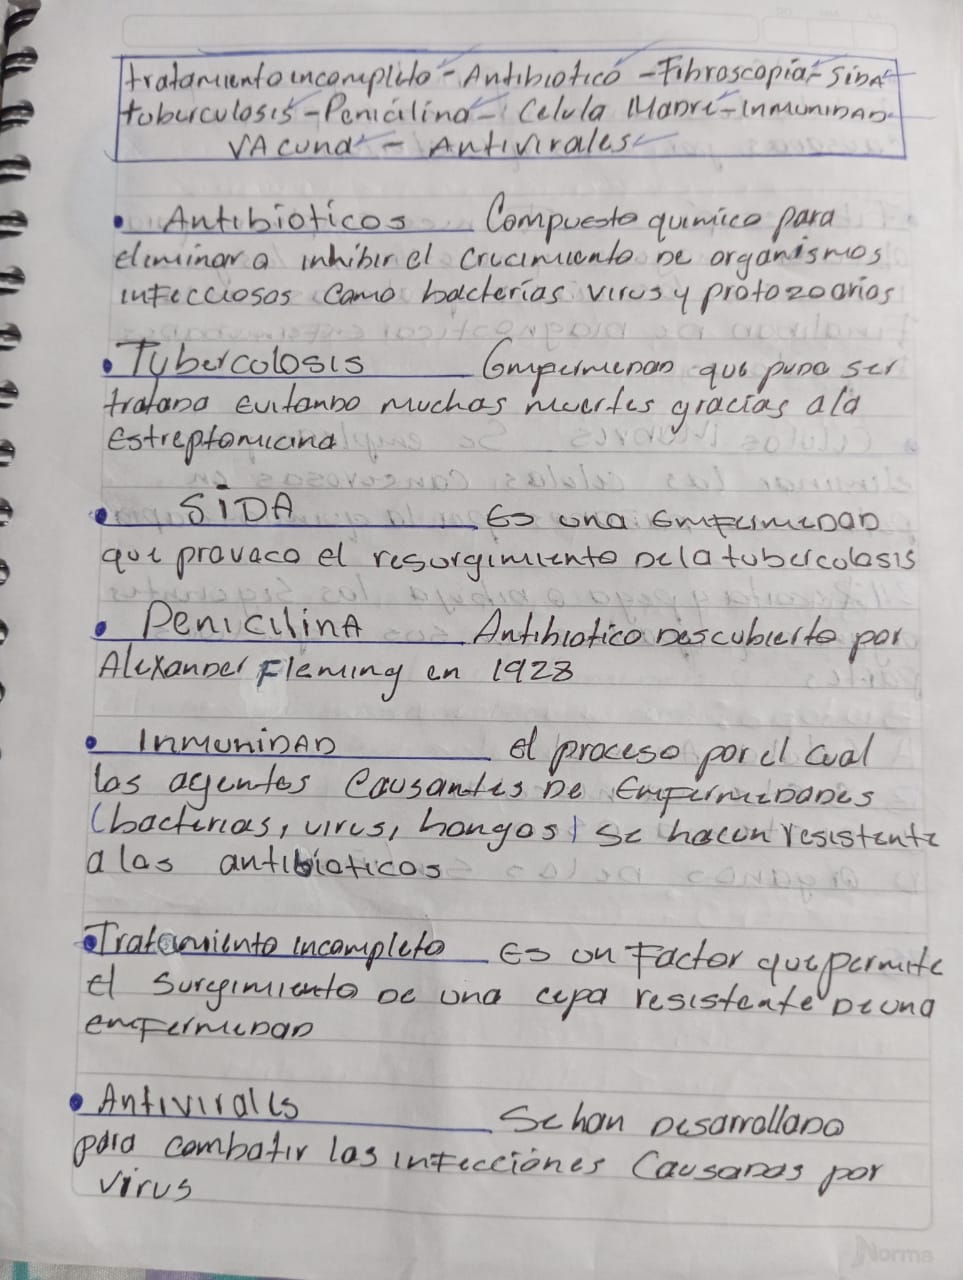 tratamiento incompleto - Antibiotico - Fibroscopia - SiDA
tuburculosis - Penicilina - Celula Madre - inmuniDAD
VAcuna - Antivirales
• Antibioticos Compuesto quimico para
eliminar a inhibir el crecimiento De organismos
infecciosos como bacterias virus y protozoarios
• Tubercolosis Emfermedad que pudo ser
tratada Evitando Muchas muertes gracias ala
Estreptomicina
• SiDA Es una Emfermedad
que provaco el resurgimiento Dela tubercolosis
• Penicilina Antibiotico Descubierto por
Alexander Fleming en 1928
• InmuniDAD el proceso por el cual
los agentes Causantes De Emfermedades
(bacterias, virus, hongos) Se hacen resistente
a los antibioticos
• Tratamiento incompleto Es un Factor que permite
el Surgimiento De una cepa resistente De una
emfermedad
• Antivirales Se han Desarrollado
para combatir las infecciones Causadas por
virus
Norma